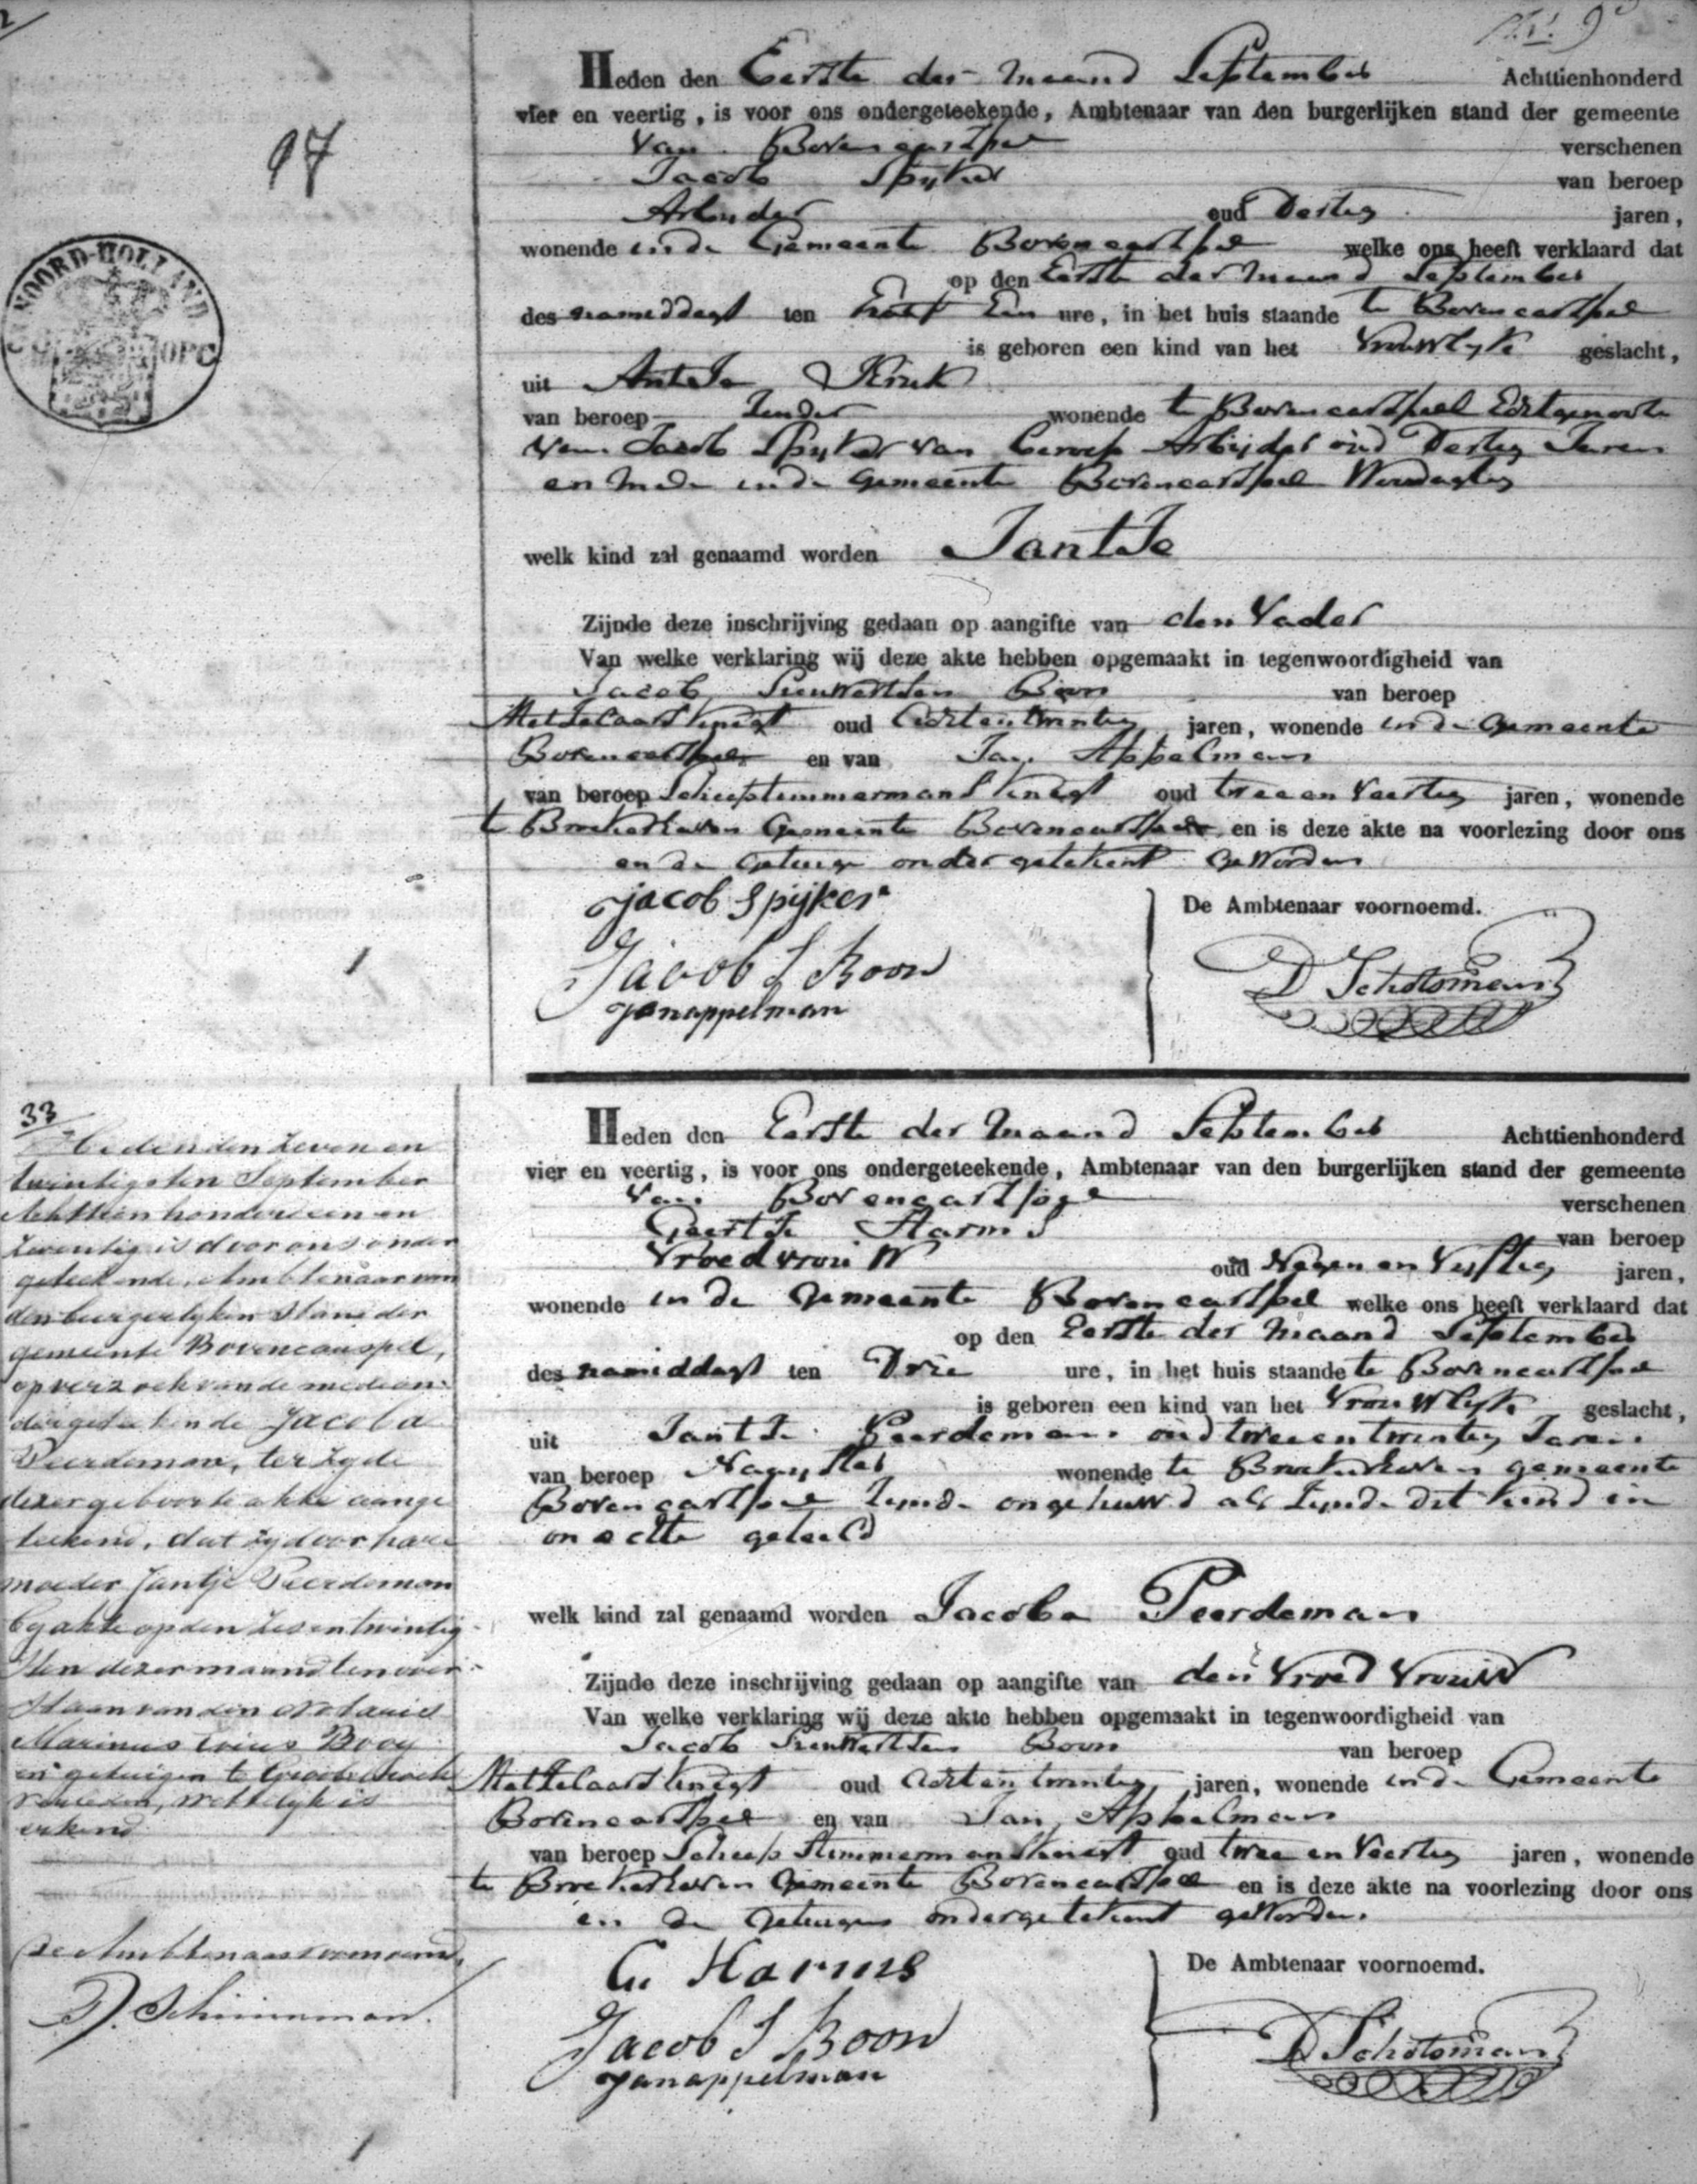 No. 9
97
NOORD-HOLLAND
Heden den Eerste der maand September Achttienhonderd
vier en veertig, is voor ons ondergeteekende, Ambtenaar van den burgerlijken stand der gemeente
van Bovencarspel verschenen
Jacob Spijker van beroep
oud Dertig jaren,
wonende in de Gemeente Bovencarspel welke ons heeft verklaard dat
op den Eerste der maand September
des namiddags ten half Een ure, in het huis staande te Bovencarspel
is geboren een kind van het Vrouwlyke geslacht,
uit Antje Kruk
van beroep Zonder wonende te Bovencarspel Echtgenoote
van Jacob Spyker van beroep Arbijder oud Dertig Jaren
en mede in de Gemeente Bovencarspel Woonagtig
welk kind zal genaamd worden JantJe
Zijnde deze inschrijving gedaan op aangifte van den Vader
Van welke verklaring wij deze akte hebben opgemaakt in tegenwoordigheid van
Jacob Sieuwertszen Boon van beroep
Mettelaars knegt oud Achtentwintig jaren, wonende in de Gemeente
Bovencarspel en van Jan Appelman
van beroep Scheepstimmermans knegt oud twee en Veertig jaren, wonende
te Broekerhaven Gemeente Bovencarspel en is deze akte na voorlezing door ons
en de Getuige ondergetekent Geworden
Jacob Spijker
Jacob S Boon
Jan appelman
De Ambtenaar voornoemd.
D Schotsman
33
Heden den zeven en
twintigsten September
Achttien honderd een en
zeventig is door ons onder
geteekende, Ambtenaar van
den burgerlyken Stand der
gemeente Bovencarspel,
op verzoek van de mede on
dergeteekende Jacoba
Peerdeman, ter zyde
dezer geboorte akte aange
teekend, dat zy door hare
moeder Jantje Peerdeman
by akte op den zes en twintig
sten dezer maand ten over
staan van den Notaris
Marinus Booy
en getuigen te Grootebroek
verleden, wettelyk is
erkend
De Ambtenaar voornoemd,
D. Schuurman.
Heden den Eerste der maand September Achttienhonderd
vier en veertig, is voor ons ondergeteekende, Ambtenaar van den burgerlijken stand der gemeente
van Bovencarspel verschenen
Geertje Harms van beroep
Vroedvrouw oud Negen en Vyftig jaren,
wonende in de Gemeente Bovencarspel welke ons heeft verklaard dat
op den Eerste der maand September
des namiddags ten Drie ure, in het huis staande te Bovencarspel
is geboren een kind van het Vrouwlyke geslacht,
uit Jantje Peerdeman oud twee en twintig Jaren
van beroep Nayster wonende te Broekerhaven gemeente
Bovencarspel Zynde ongehuwd als Zynde dit kind in
onechte geteeld
welk kind zal genaamd worden Jacoba Peerdeman
Zijnde deze inschrijving gedaan op aangifte van den Vroed Vrouw
Van welke verklaring wij deze akte hebben opgemaakt in tegenwoordigheid van
Jacob Sieuwertszen Boon van beroep
Mettelaars knegt oud Achtentwintig jaren, wonende in de Gemeente
Bovencarspel en van Jan Appelman
van beroep Scheepstimmermansknegt oud twee en Veertig jaren, wonende
te Broekerhaven Gemeente Bovencarspel en is deze akte na voorlezing door ons
en de Getuigen ondergetekent geworden.
G Harms
Jacob S Boon
Jan appelman
De Ambtenaar voornoemd.
D Schotsman